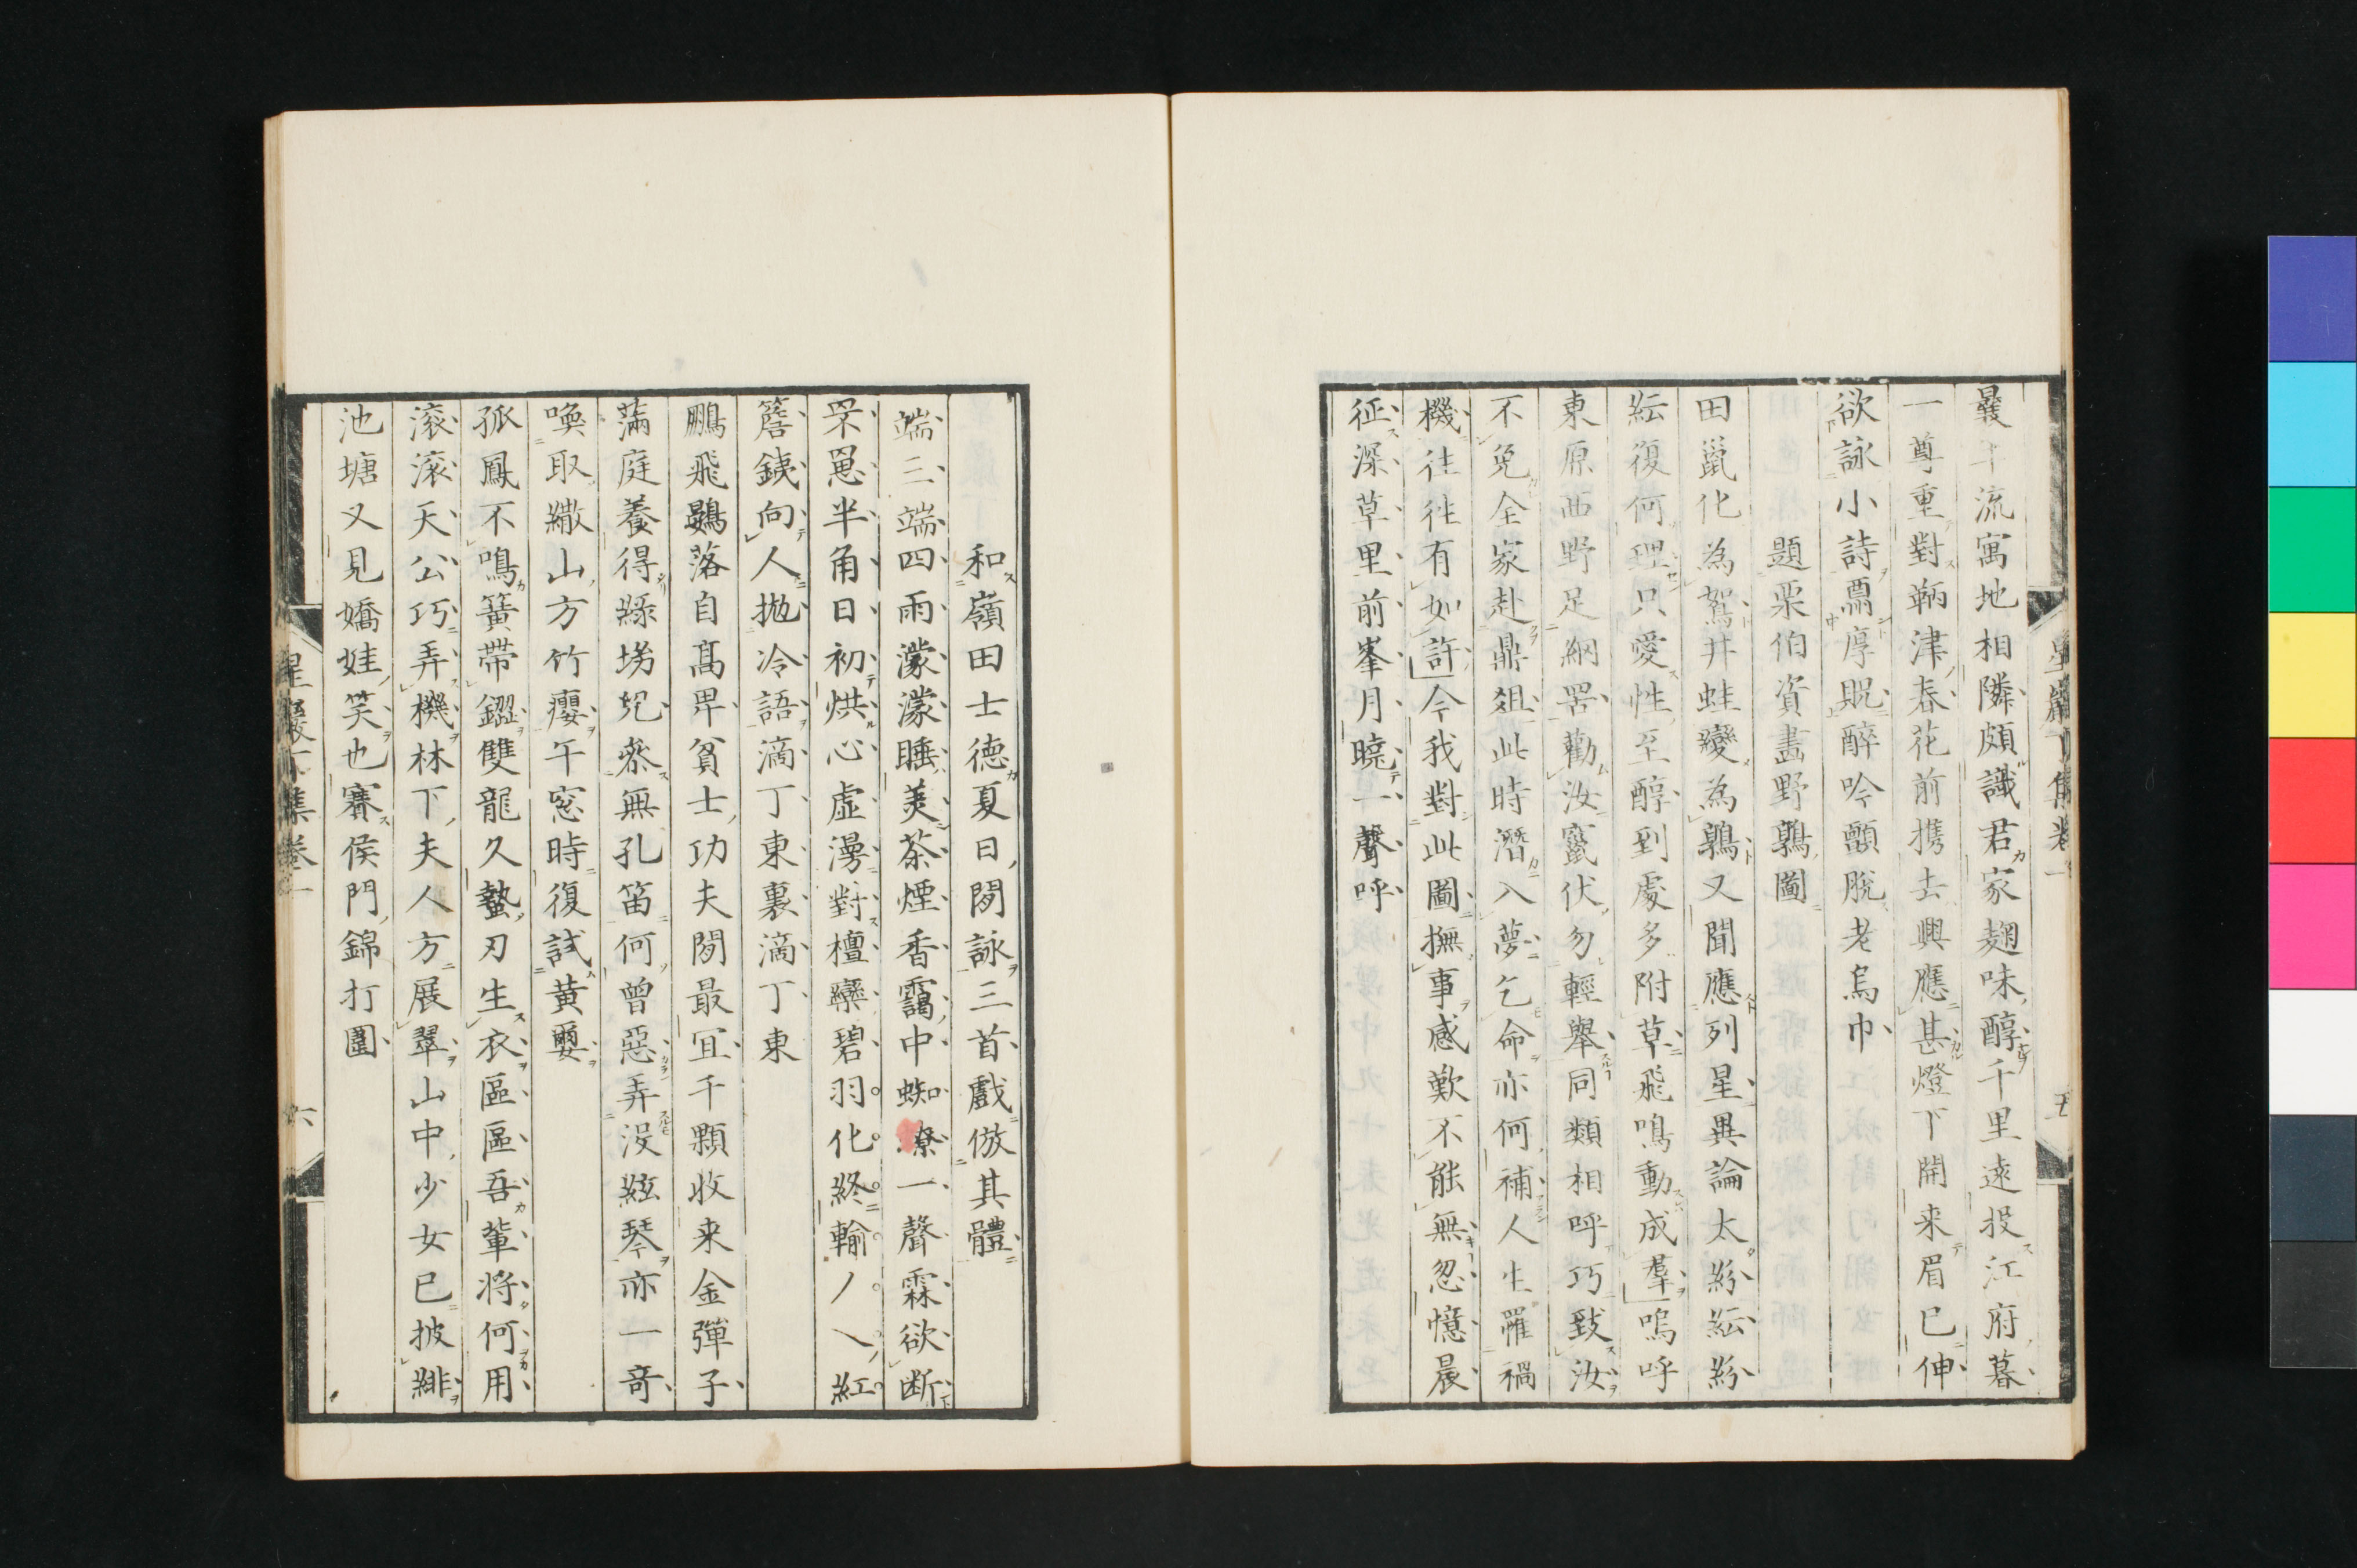 曩年流寓地相隣頗識君家麹味醇千里遠投江府暮
一尊重對鞆津春花前携去興應甚燈下開来眉已伸
欲詠小詩酬厚貺醉吟顫脫老烏巾
題栗伯資畵野鶉圖
田鼠化為鴽井蛙變為鶉又聞應列星異論太紛紜紛
紜復何理只愛性至醇到處多附草飛鳴動成羣嗚呼
東原西野足網罟勸汝竄伏勿輕舉同類相呼巧致汝
不免全家赴鼎俎此時潛入夢乞命亦何補人生罹禍
機往往有如許今我對此圖撫事感歎不能無忽憶晨
征深草里前峯月曉一聲呼
星巖丁集卷一
五
和嶺田士德夏日閒詠三首戲倣其體
端三端四雨濛濛睡美茶煙香靄中蜘蟟一聲霖欲断
罘罳半角日初烘心虛漫對檀欒碧羽化終輸丿乀紅
簷鐵向人拋冷語滴丁東裏滴丁東
鵬飛鷃落自髙卑貧士功夫閒最宜千顆收来金彈子
滿庭養得綠㛂兒吞無孔笛何曾惡弄沒絃琴亦一奇
喚取繖山方竹癭午窓時復試黄嬰
孤鳳不鳴簧帶澀雙龍久蟄刃生衣區區吾輩將何用
滚滚天公巧弄機林下夫人方展翠山中少女已披緋
池塘又見嬌娃笑也賽侯門錦打圍
星巖丁集卷一
六